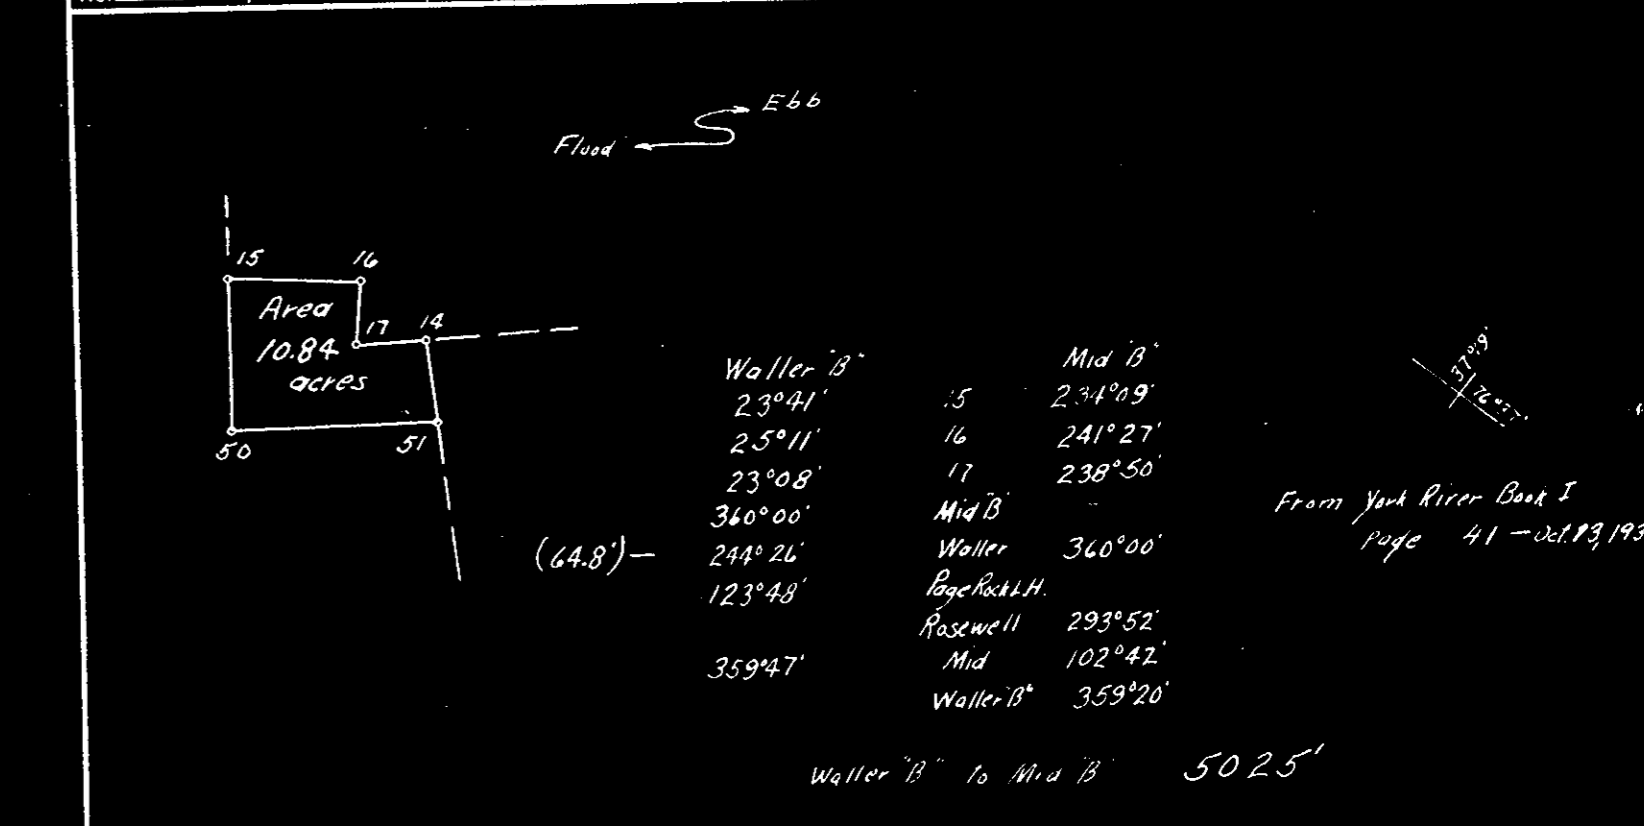 Ebb
Flood
15 16
Area
17 14
10.84
acres
50 51
Waller "B" Mid "B"
23°41' 15 234°09'
25°11' 16 241°27'
23°08' 17 238°50'
360°00' Mid "B"
(64.8')— 244°26' Waller 360°00'
123°48' Page Rock L.H.
Rosewell 293°52'
359°47' Mid 102°42'
Waller "B" 359°20'
Waller "B" to Mid "B" 5025'
37°19'
From York River Book I
Page 41 — Oct. 13, 193